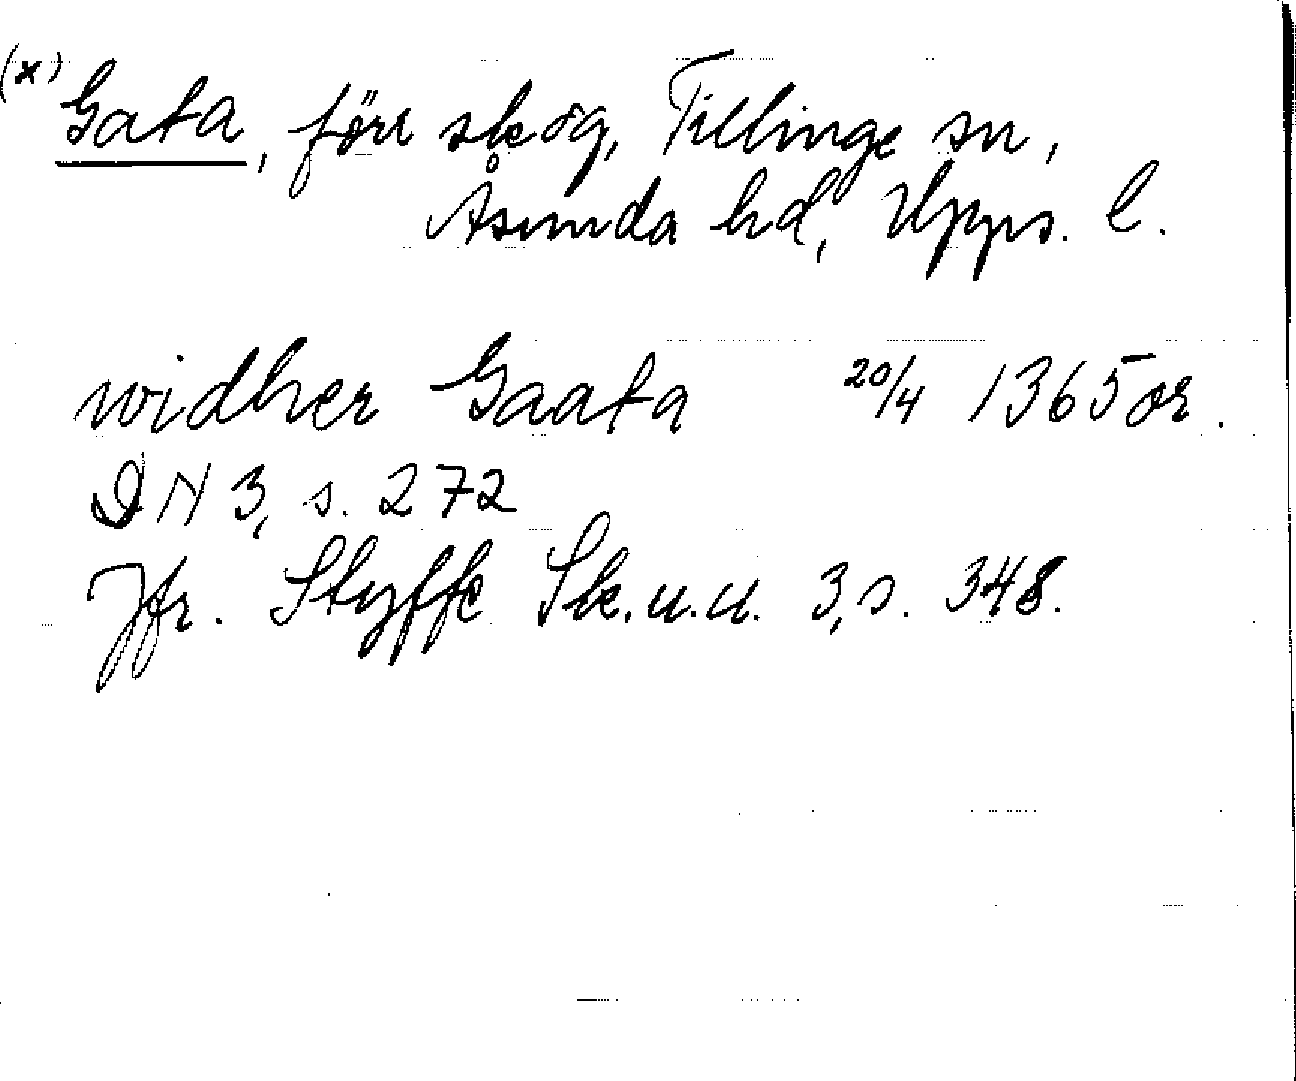 (x) Gata, förr skog, Tillinge sn,
Åsunda hd, Upps. l.
widher Gaata 20/4 1365 or.
DN 3, s. 272
Jfr. Styffe Sk.u.u. 3, s. 348.